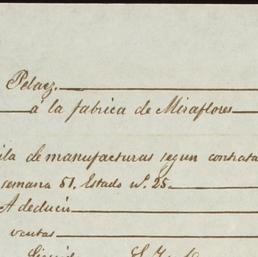 Pelaez.
á la fabrica de Miraflores
de manufacturas segun contrata
semana 51. Estado nº. 25.
A deducir
ventas